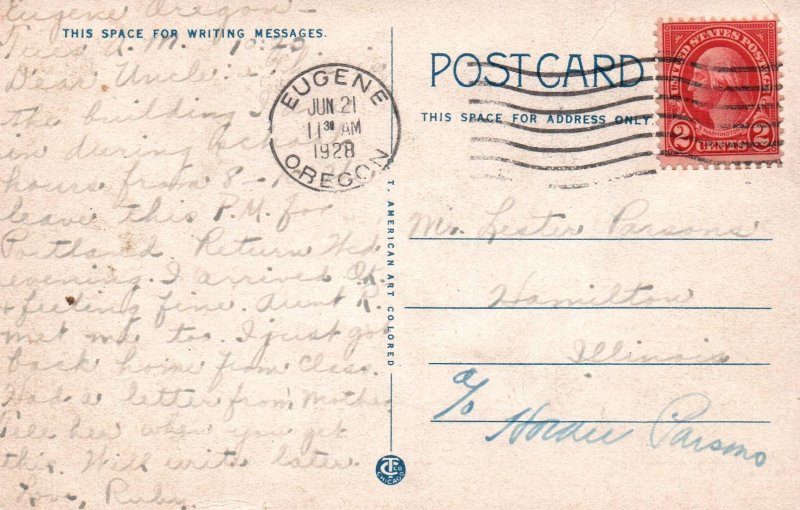 Eugene Oregon -
THIS SPACE FOR WRITING MESSAGES.
A.M. 10:25
Dear Uncle:
the building I
in during school
hours from 8-1
leave this P.M. for
Portland. Return Wed.
evening. I arrived O.K.
+ feeling fine. Aunt R.
met me too. I just got
back home from class.
Had a letter from Mother
Tell her when you get
this. Will write later.
Love, Ruby
EUGENE
JUN 21
11 30 AM
1928
OREGON
T. AMERICAN ART COLORED
CT CO
CHICAGO
POST CARD
THIS SPACE FOR ADDRESS ONLY.
UNITED STATES POSTAGE
WASHINGTON
2 CENTS 2
Mr. Lester Parsons
Hamilton
Illinois
c/o Parsons